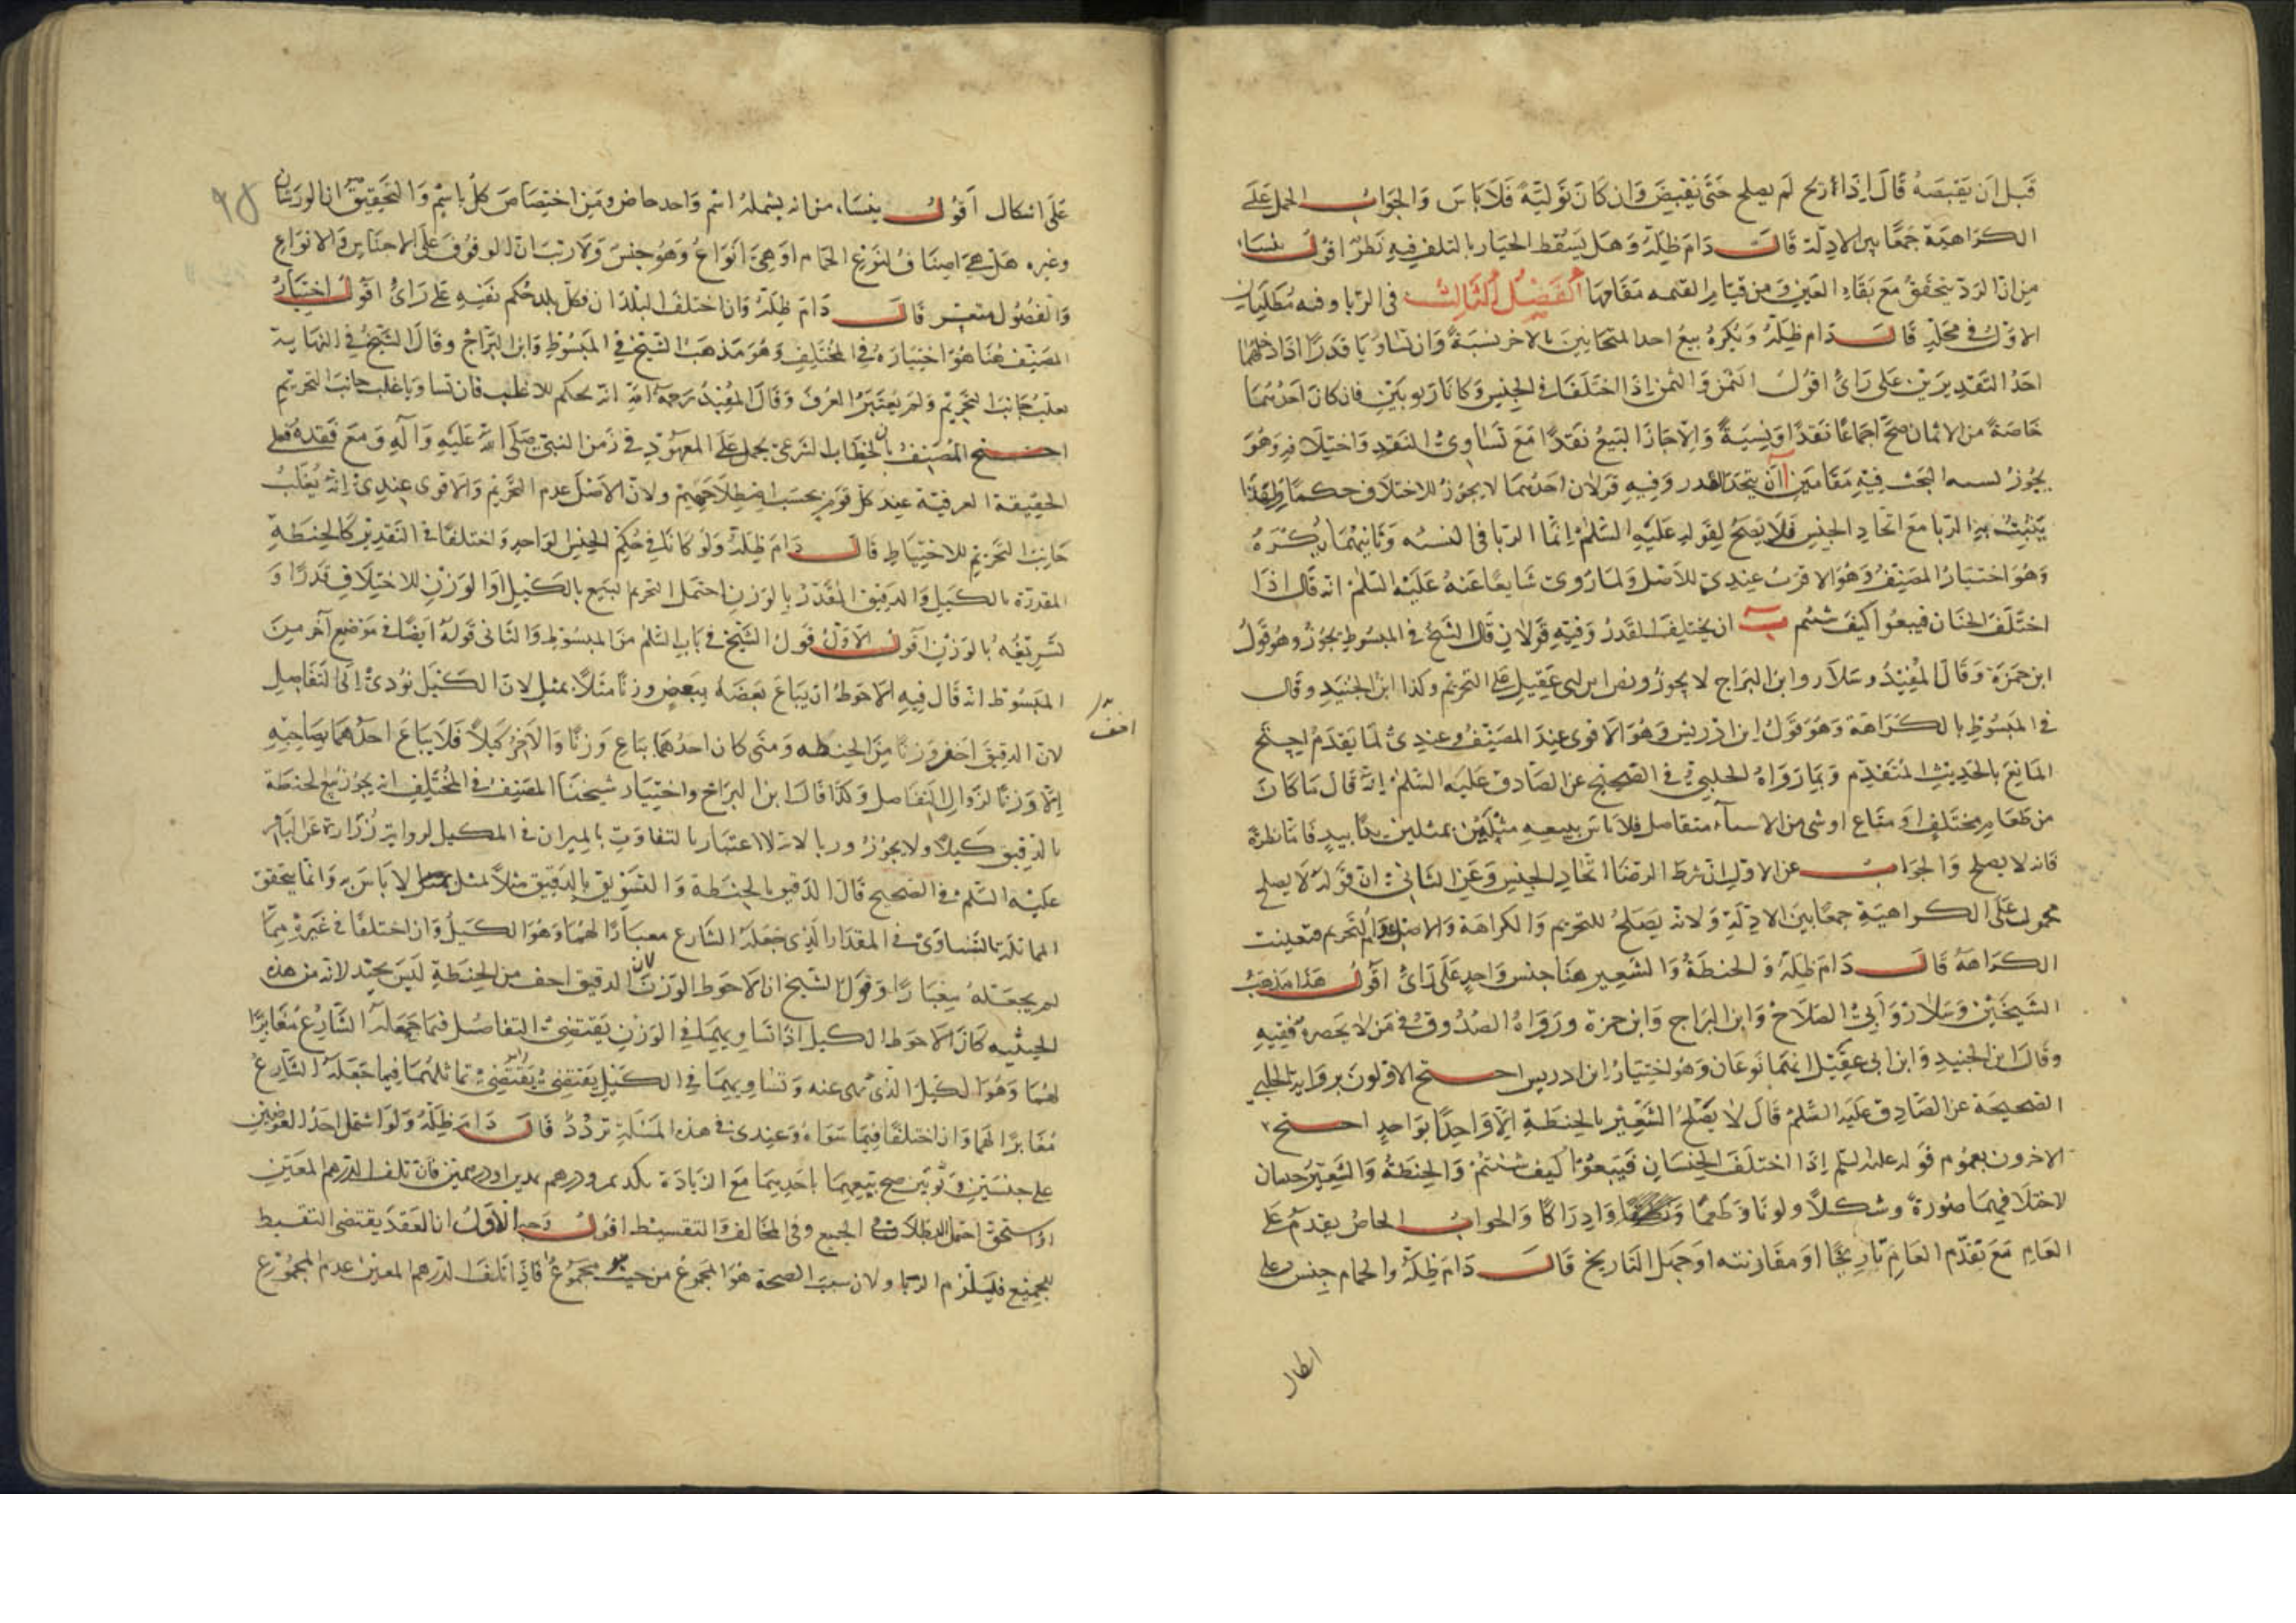 قبل ان يقبضه قال اذا اربح لم يصلح حتى يقبض وان كان توليه فلا باس والجواب الحمل على
الكراهية جمعا بين الادلة قال دام ظله وهل يسقط الخيار بالتلف فيه نظر اقول ينشا
من ان الرد يتحقق مع بقاء العين ومن قيام القيمه مقامها الفصل الثالث في الربا وفيه مطلبان
الاول في محله قال دام ظله ويكره بيع احد المتجانسين بالاخر نسية وان تساويا قدرا اذا دخلهما
احد التقديرين على راي اقول الثمن والمثمن اذا اختلفا في الجنس وكانا ربويين فان كان احدهما
خاصة من الاثمان صح اجماعا نقدا ونسية والا جاز البيع نقدا مع تساوي القدر واختلافه وهو
يجوز نسيه البحث فيه مقامين ا ان يتحد القدر وفيه قولان احدهما لا يجوز للاختلاف حكما ولهذا
يثبت الربا مع اتحاد الجنس فلا يصح لقوله عليه السلم انما الربا في النسيه وثانيهما يكره
وهو اختيار المصنف وهو الاقرب عندي للاصل ولما روي شايعا عنه عليه السلم انه قال اذا
اختلف الجنسان فبيعوا كيف شئتم ب ان يختلف القدر وفيه قولان قال الشيخ في المبسوط يجوز وهو قول
ابن حمزة وقال المفيد وسلار وابن البراج لا يجوز ونص ابن ابي عقيل على التحريم وكذا ابن الجنيد وقال
في المبسوط بالكراهة وهو قول ابن ادريس وهو الاقوى عند المصنف وعندي لما تقدم احتج
المانع بالحديث المتقدم وبما رواه الحلبي في الصحيح عن الصادق عليه السلم انه قال ما كان
من طعام مختلف او متاع او شي من الاشياء متفاضل فلا باس ببيعه مثلين بمثل يدا بيد فاما نظرة
فانه لا يصلح والجواب عن الاول ان شرط الربا اتحاد الجنس وعن الثاني ان قوله لا يصلح
محمول على الكراهية جمعا بين الادلة ولانه يصلح للتحريم والكراهة والاصل عدم التحريم فتعينت
الكراهة قال دام ظله والحنطة والشعير هنا جنس واحد على راي اقول هذا مذهب
الشيخين وسلار وابي الصلاح وابن البراج وابن حمزة ورواه الصدوق في من لا يحضره الفقيه
وقال ابن الجنيد وابن ابي عقيل انهما نوعان وهو اختيار ابن ادريس احتج الاولون برواية الحلبي
الصحيحة عن الصادق عليه السلم قال لا يصلح الشعير بالحنطة الا واحدا بواحد احتج
الاخرون بعموم قوله عليه السلم اذا اختلف الجنسان فبيعوا كيف شئتم والحنطة والشعير جنسان
لاختلافهما صورة وشكلا ولونا وطعما وادراكا والجواب الخاص يقدم على
العام مع تقدم العام تاريخا او مقارنته او جهل التاريخ قال دام ظله والحمام جنس على
على اشكال اقول ينشا من انه يشمله اسم واحد خاص ومن اختصاص كل باسم والتحقيق ان الورشان
وغيره هل هي اصناف لنوع الحمام او هي انواع وهو جنس ولا ريب ان الوقوف على الاجناس والانواع
والفصول متعسر قال دام ظله وان اختلف البلدان فكل بلد حكم نفسه على راي اقول اختيار
المصنف هنا هو اختياره في المختلف وهو مذهب الشيخ في المبسوط وابن البراج وقال الشيخ في النهاية
يغلب جانب التحريم ولم يعتبر العرف وقال المفيد رحمه الله انه يحكم للاغلب فان تساويا غلب جانب التحريم
احتج المصنف بان الخطاب الشرعي يحمل على المعهود في زمن النبي صلى الله عليه وآله ومع فقده فعلى
الحقيقة العرفية عند كل قوم بحسب اصطلاحهم ولان الاصل عدم التحريم والاقوى عندي انه يغلب
جانب التحريم للاحتياط قال دام ظله ولو كانا في حكم الجنس الواحد واختلفا في التقدير كالحنطة
المقدرة بالكيل والدقيق المقدر بالوزن احتمل تحريم البيع بالكيل او الوزن للاختلاف قدرا و
تسويغه بالوزن اقول الاول قول الشيخ في باب السلم من المبسوط والثاني قوله ايضا في موضع آخر من
المبسوط انه قال فيه الاحوط ان يباع بعضه ببعض وزنا مثلا بمثل لان الكيل يؤدي الى التفاضل
لان الدقيق اخف وزنا من الحنطه ومتى كان احدهما يباع وزنا والاخر كيلا فلا يباع احدهما بصاحبه
اخف
الا وزنا لزوال التفاضل وكذا قال ابن البراج واختيار شيخنا المصنف في المختلف انه يجوز بيع الحنطة
بالدقيق كيلا ولا يجوز وزنا لانه لا اعتبار بالتفاوت بالميزان في المكيل لرواية زرارة عن الباقر
عليه السلم في الصحيح قال الدقيق بالحنطة والسويق بالدقيق مثلا بمثل لا باس به وانما يتحقق
المماثلة بالتساوي في المقدار الذي جعله الشارع معيارا لهما وهو الكيل وان اختلفا في غيره مما
لم يجعله معيارا وقول الشيخ ان الاحوط الوزن لان الدقيق اخف من الحنطة ليس بجيد لانه من هذه
الحيثيه كان الاحوط الكيل اذ تساويهما في الوزن يقتضي التفاضل فيما جعله الشارع معيارا
لهما وهو الكيل الذي نهى عنه وتساويهما في الكيل يقتضي تماثلهما فيما جعله الشارع
معيارا لهما وان اختلفا فيما سواه وعندي في هذه المسئلة تردد قال دام ظله ولو اشتمل احد العوضين
على جنسين ربويين صح بيعهما باحدهما مع الزيادة كمد تمر ودرهم بمدين او درهمين فان تلف الدرهم المعين
او استحق احتمل البطلان في الجميع وفي المخالف والتقسيط اقول وجه الاول ان العقد يقتضي التقسيط
للجميع فيلزم الربا ولان سبب الصحة هو المجموع من حيث هو مجموع فاذا تلف الدرهم المعين عدم المجموع